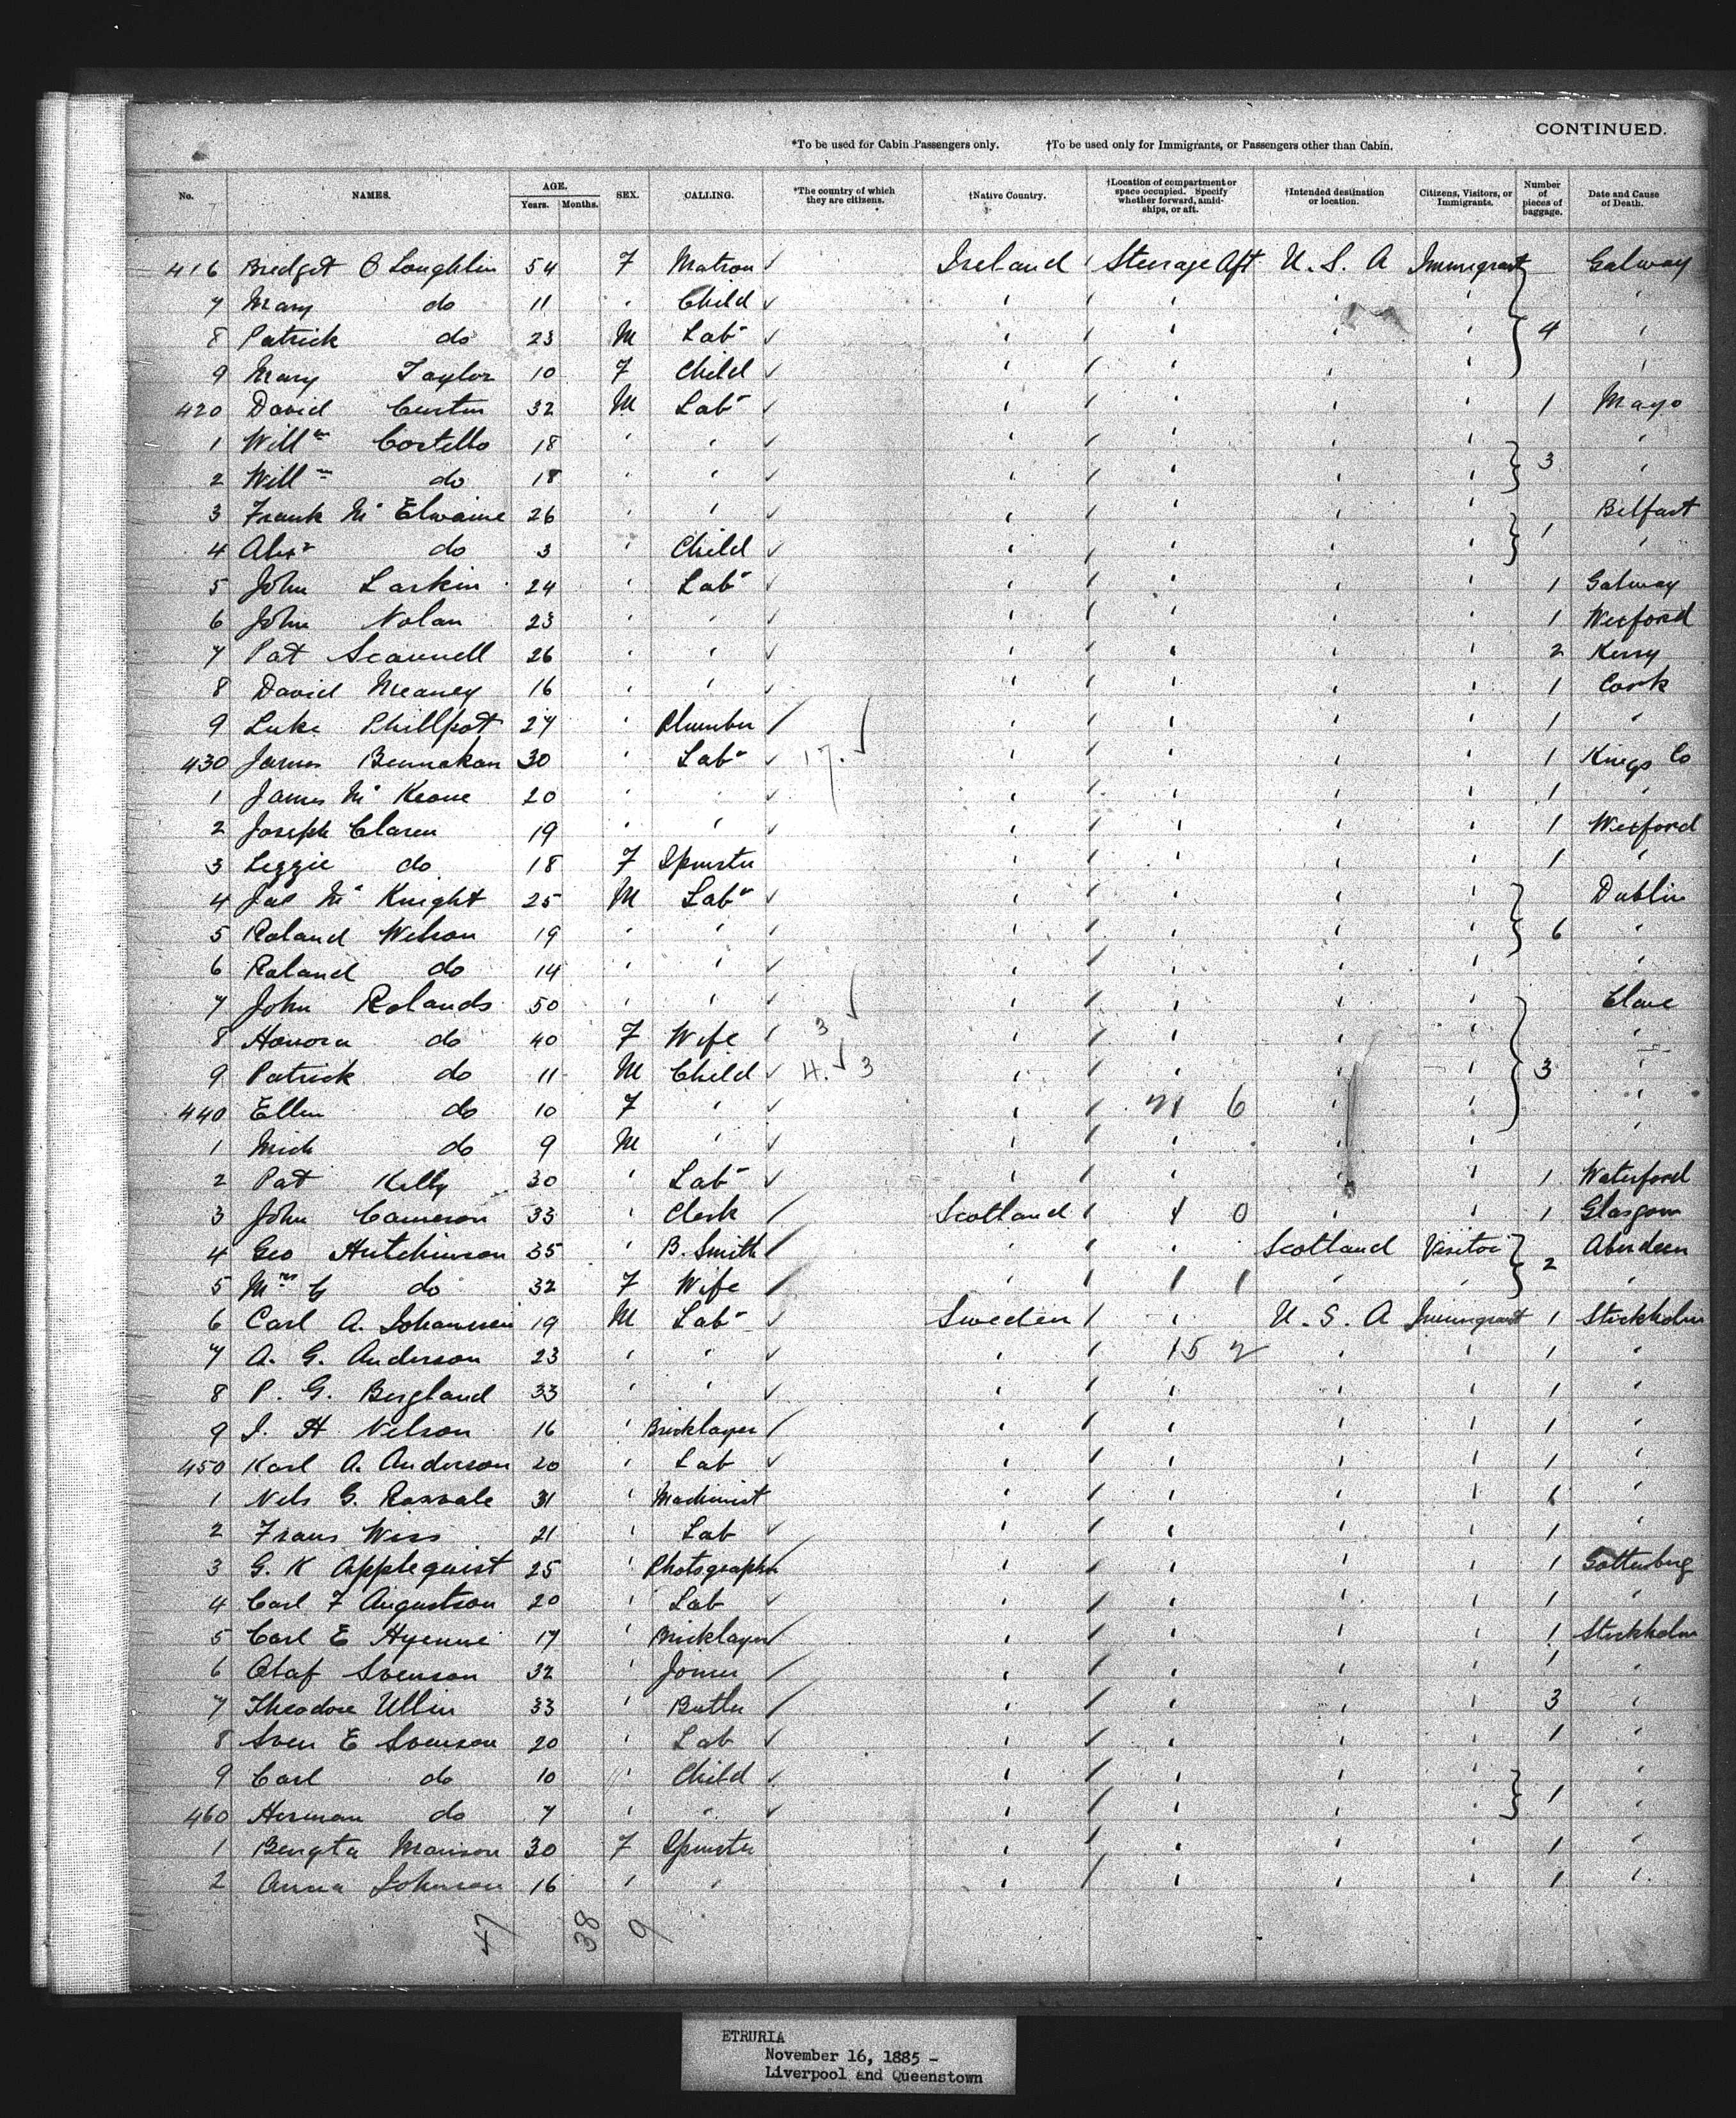 CONTINUED.
*To be used for Cabin Passengers only. †To be used only for Immigrants, or Passengers other than Cabin.
No. NAMES. AGE. Years. Months. SEX. CALLING. *The country of which they are citizens. †Native Country. †Location of compartment or space occupied. Specify whether forward, amidships, or aft. †Intended destination or location. Citizens, Visitors, or Immigrants. Number of pieces of baggage. Date and Cause of Death.
416 Bridget O Loughlin 54 F Matron Ireland Steerage Aft U.S.A Immigrant Galway
7 Mary do 11 " Child " " " " "
8 Patrick do 23 M Labr " " " " 4 "
9 Mary Taylor 10 F Child " " " " "
420 David Curtin 32 M Labr " " " " 1 Mayo
1 Willm Costello 18 " " " " " " "
2 Willm do 18 " " " " " " 3 "
3 Frank Mc Elwaine 26 " " " " " " Belfast
4 Alexr do 3 " Child " " " " 1 "
5 John Larkin 24 " Labr " " " " 1 Galway
6 John Nolan 23 " " " " " " 1 Wexford
7 Pat Scannell 26 " " " " " " 2 Kerry
8 David Meaney 16 " " " " " " 1 Cork
9 Luke Phillpot 27 " Plumber " " " " 1 "
430 James Bennakan 30 " Labr 17. " " " " 1 Kings Co
1 James Mc Keone 20 " " " " " " 1 "
2 Joseph Claren 19 " " " " " " 1 Wexford
3 Lizzie do 18 F Spinster " " " " 1 "
4 Jas Mc Knight 25 M Labr " " " " Dublin
5 Roland Wilson 19 " " " " " " 6 "
6 Roland do 14 " " " " " " "
7 John Rolands 50 " " " " " " Clare
8 Honora do 40 F Wife 3 " " " " "
9 Patrick do 11 M Child 4. 3 " " " " 3 "
440 Ellen do 10 F " " " 6 " " "
1 Mich do 9 M " " " " " "
2 Pat Kelly 30 " Labr " " " " 1 Waterford
3 John Cameron 33 " Clerk Scotland 4 0 " " 1 Glasgow
4 Geo Hutchinson 35 " B. Smith " " Scotland Visitor 2 Aberdeen
5 Mrs G do 32 F Wife " 1 1 " " "
6 Carl A. Johanssen 19 M Labr Sweden " U.S.A Immigrant 1 Stockholm
7 A. G. Anderson 23 " " " 15 2 " " 1 "
8 P. G. Bergland 33 " " " " " " 1 "
9 J. H Nelson 16 " Bricklayer " " " " 1 "
450 Karl A. Anderson 20 " Lab " " " " 1 "
1 Nels G. Rosvale 31 " Machinist " " " " 1 "
2 Frans Wiss 21 " Lab " " " " 1 "
3 G. K Applequist 25 " Photographer " " " " 1 Gottenburg
4 Carl F Augustson 20 " Lab " " " " 1 "
5 Carl E 17 " Bricklayer " " " " 1 Stockholm
6 Olaf Svenson 32 " Joiner " " " " 1 "
7 Theodore Ullin 33 " Butler " " " " 3 "
8 Sven E Svenson 20 " Lab " " " " 1 "
9 Carl do 10 " Child " " " " "
460 Herman do 7 " " " " " " 1 "
1 Bengta Monison 30 F Spinster " " " " 1 "
2 Anna Johnson 16 " " " " " " 1 "
47 38 9
ETRURIA
November 16, 1885 -
Liverpool and Queenstown